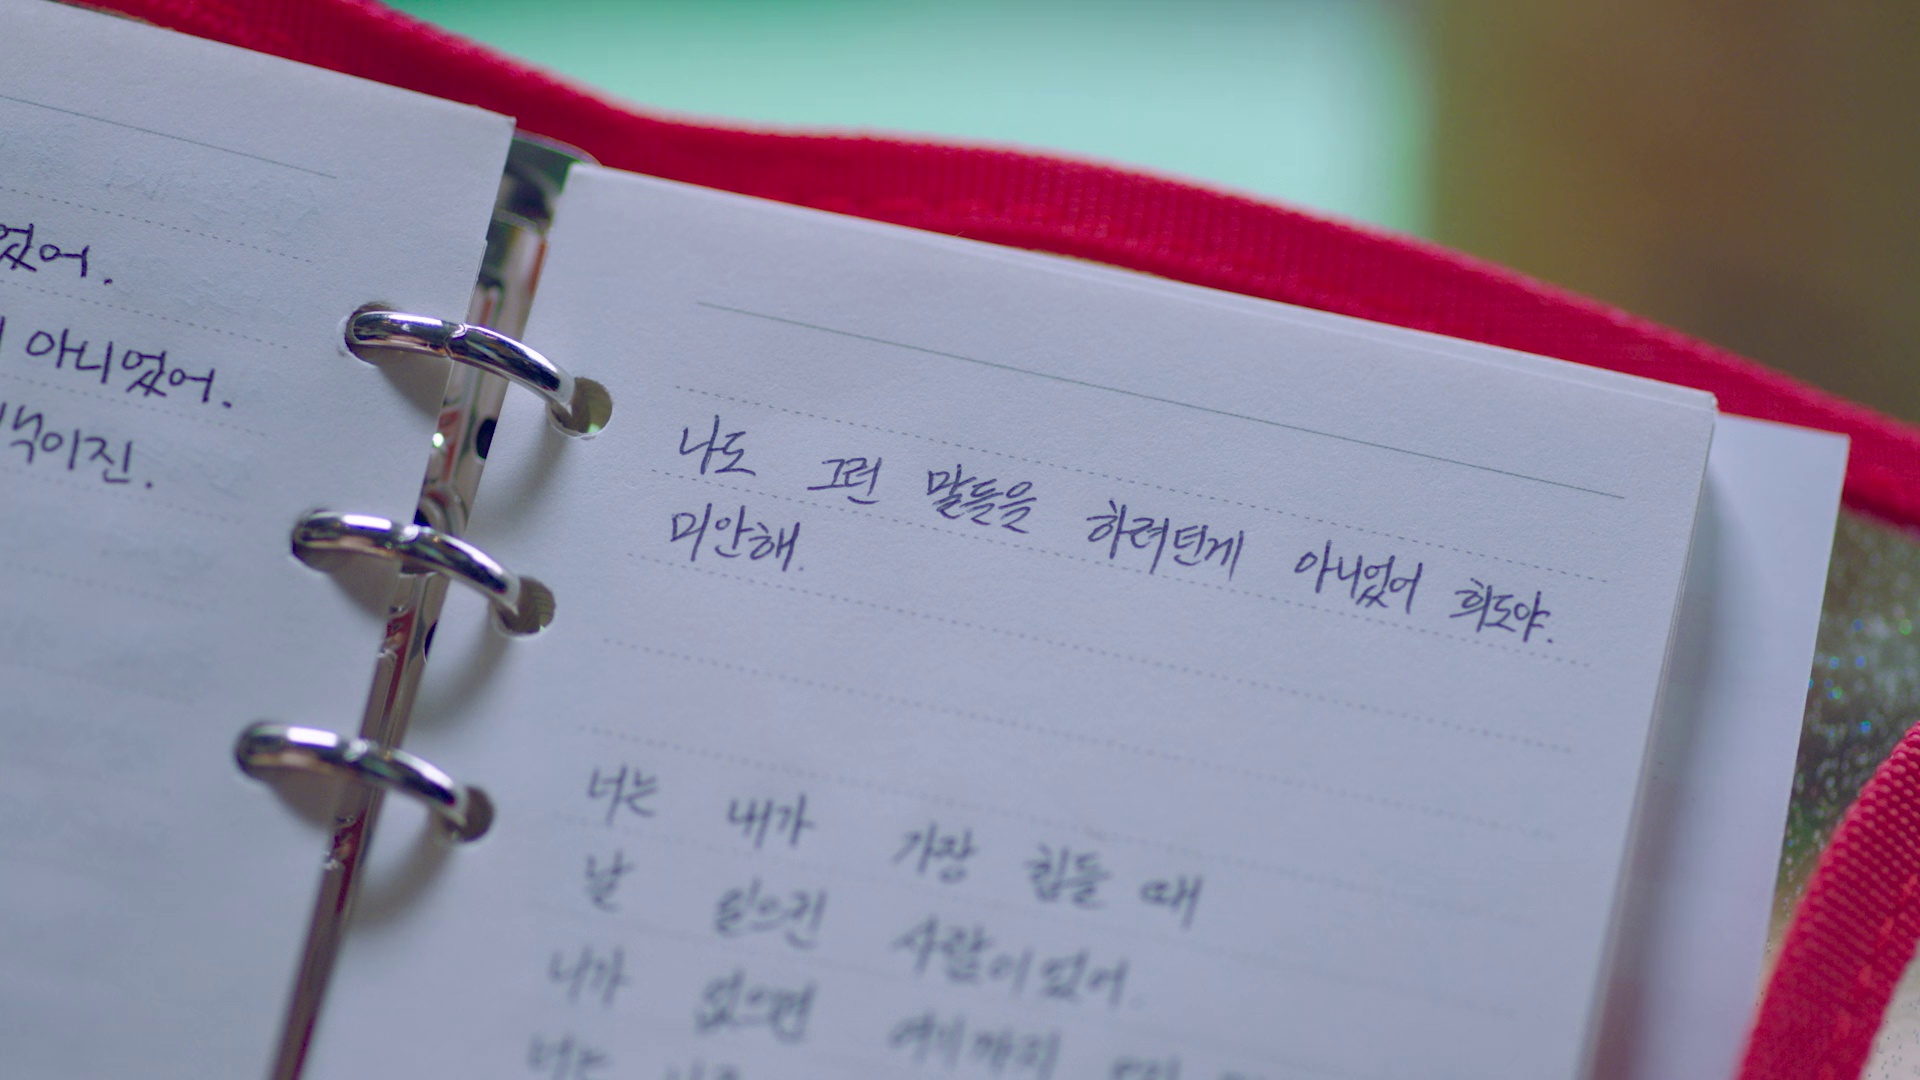 었어.
아니었어.
백이진.
나도 그런 말들을 하려던게 아니었어 희도야.
미안해.
너는 내가 가장 힘들 때
날 일으킨 사람이었어.
니가 없으면 여기까지
너는